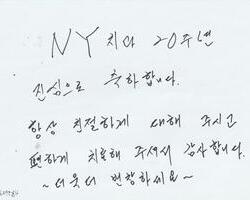 NY치과 20주년
진심으로 축하합니다.
항상 친절하게 대해 주시고
편하게 치료해 주셔서 감사합니다.
~더욱더 번창하세요~